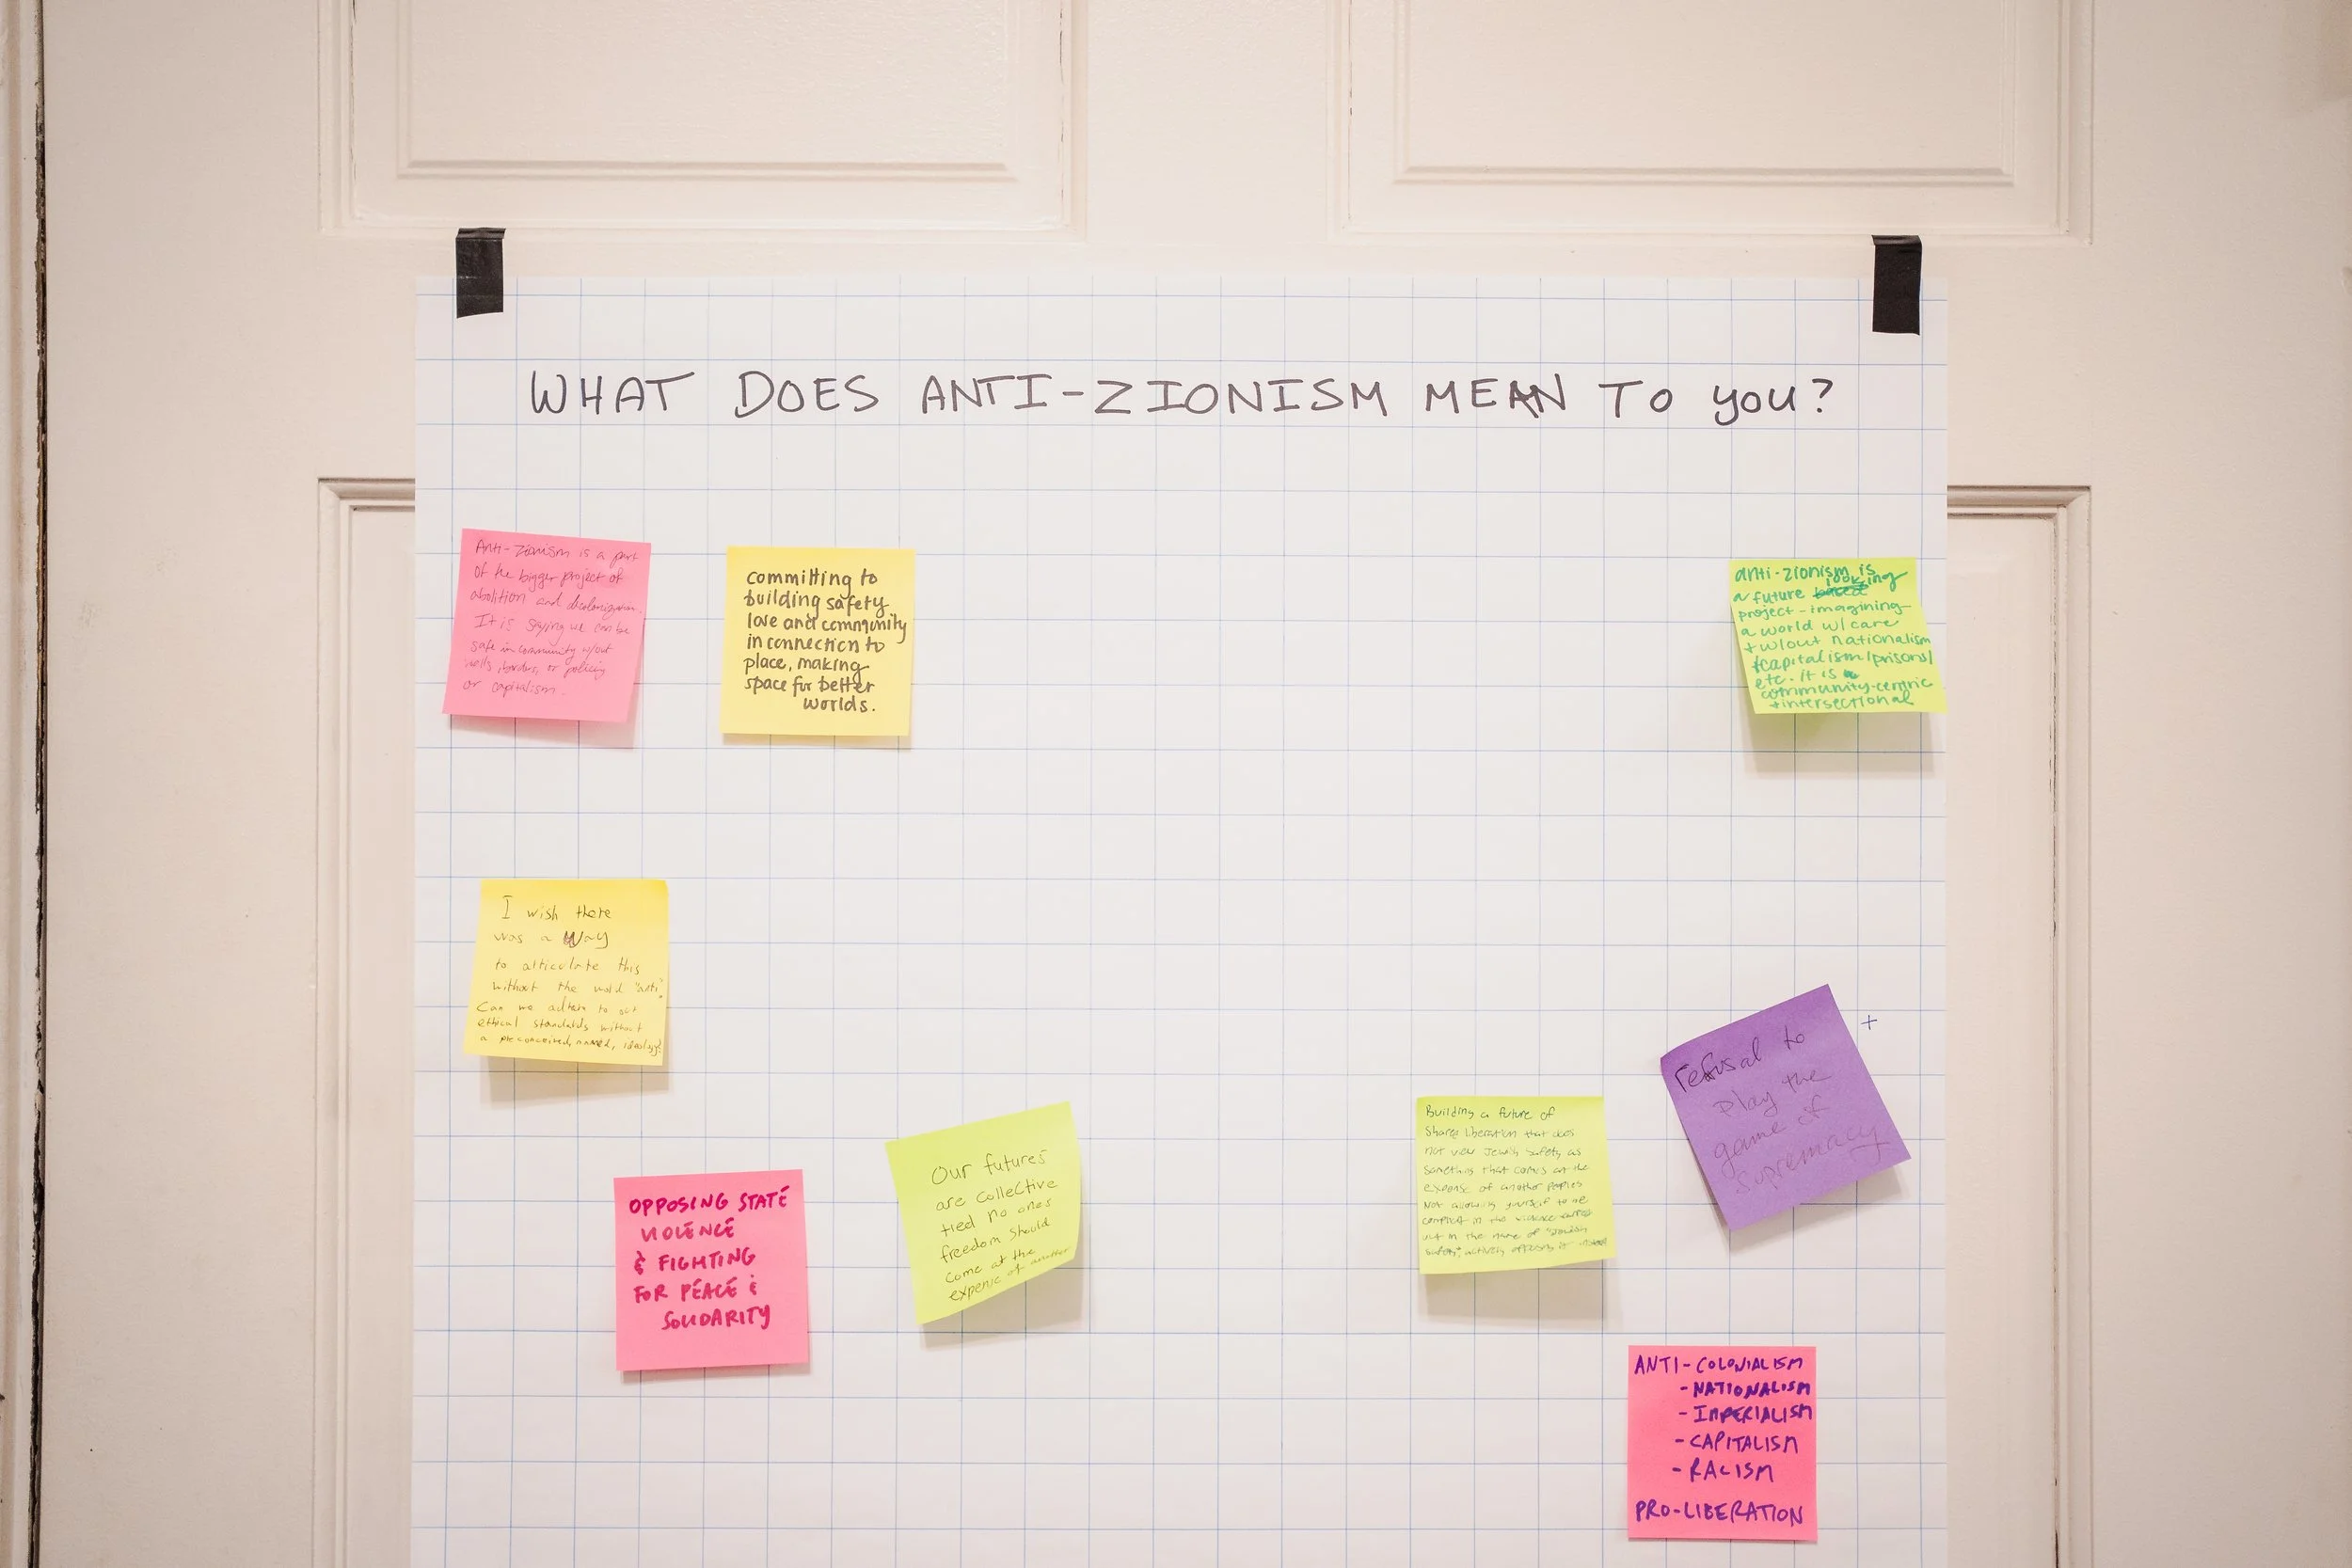 WHAT DOES ANTI-ZIONISM MEAN TO YOU?
Anti-Zionism is a part
of the bigger project of
abolition and decolonization.
It is saying we can be
safe in community w/out
walls, borders, or policing
or capitalism.
committing to
building safety
love and community
in connection to
place, making
space for better
worlds.
anti-zionism is
looking
a future based
project - imagining
a world w/ care
+ w/out nationalism
+capitalism/prisons/
etc. it is
community-centric
+intersectional
I wish there
was a way
to articulate this
without the word "anti".
Can we adhere to our
ethical standards without
a preconceived, named, ideology?
OPPOSING STATE
VIOLENCE
& FIGHTING
FOR PEACE &
SOLIDARITY
Our futures
are collective
tied no ones
freedom should
come at the
expense of another
Building a future of
shared liberation that does
not view Jewish safety as
something that comes at the
expense of another peoples
Not allowing yourself to be
complicit in the violence carried
out in the name of "Jewish
safety", actively opposing it
+
refusal to
play the
game of
supremacy
ANTI-COLONIALISM
-NATIONALISM
-IMPERIALISM
-CAPITALISM
-RACISM
PRO-LIBERATION